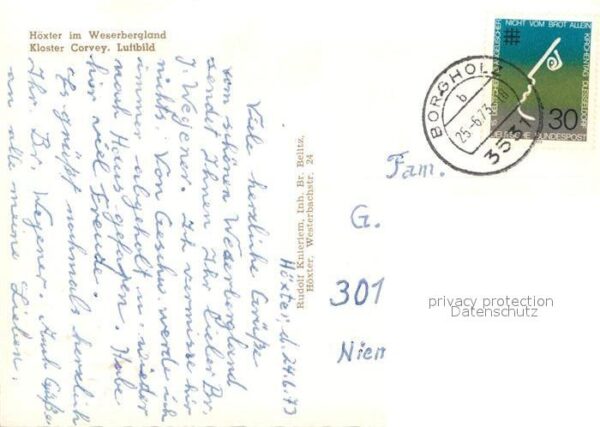 Höxter im Weserbergland
Kloster Corvey. Luftbild
Höxter, d. 24.6.73
Viele herzliche Grüße
vom schönen Weserbergland
sendet Ihnen Ihr lieber Br.
J. Wegener. Ich vermisse hier
nichts. Von Geschw. werde ich
immer abgeholt u. wieder
nach Haus gefahren. Habe
hier viel Freude.
Es grüßt nochmals herzlich
Ihr Br. Wegener. Auch Grüße
an alle meine Lieben.
Rudolf Knieriem, Inh. Br. Belitz,
Höxter, Westerbachstr. 24
NICHT VOM BROT ALLEIN
KIRCHENTAG DUESSELDORF
30
BUNDESPOST
BORGHOLZ
b
25.-6.73
Fam.
G.
301
Nien
privacy protection
Datenschutz